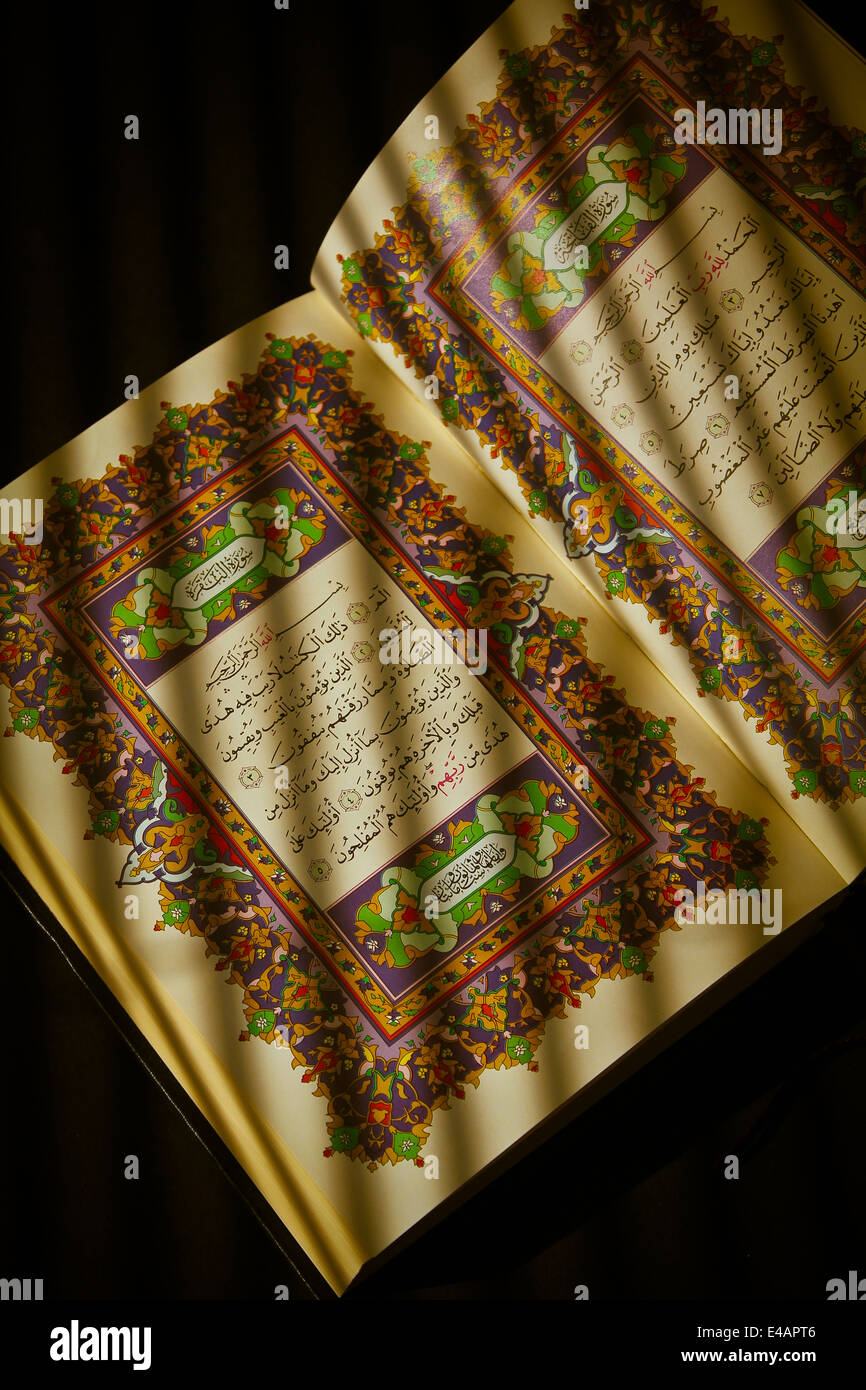 سُورَةُ الْفَاتِحَةِ
بِسْمِ اللَّهِ الرَّحْمَٰنِ الرَّحِيمِ ١
الْحَمْدُ لِلَّهِ رَبِّ الْعَٰلَمِينَ ٢ الرَّحْمَٰنِ
الرَّحِيمِ ٣ مَٰلِكِ يَوْمِ الدِّينِ ٤
إِيَّاكَ نَعْبُدُ وَإِيَّاكَ نَسْتَعِينُ ٥
اهْدِنَا الصِّرَٰطَ الْمُسْتَقِيمَ ٦ صِرَٰطَ
الَّذِينَ أَنْعَمْتَ عَلَيْهِمْ غَيْرِ الْمَغْضُوبِ
عَلَيْهِمْ وَلَا الضَّالِّينَ ٧
سُورَةُ الْبَقَرَةِ
بِسْمِ اللَّهِ الرَّحْمَٰنِ الرَّحِيمِ
الٓمٓ ١ ذَٰلِكَ الْكِتَٰبُ لَا رَيْبَ فِيهِ هُدًى
لِلْمُتَّقِينَ ٢ الَّذِينَ يُؤْمِنُونَ بِالْغَيْبِ وَيُقِيمُونَ
الصَّلَوٰةَ وَمِمَّا رَزَقْنَٰهُمْ يُنْفِقُونَ ٣
وَالَّذِينَ يُؤْمِنُونَ بِمَا أُنْزِلَ إِلَيْكَ وَمَا أُنْزِلَ مِنْ
قَبْلِكَ وَبِالْآخِرَةِ هُمْ يُوقِنُونَ ٤ أُولَٰئِكَ عَلَىٰ
هُدًى مِنْ رَبِّهِمْ وَأُولَٰئِكَ هُمُ الْمُفْلِحُونَ ٥
alamy
a
alamy stock photo
E4APT6
www.alamy.com